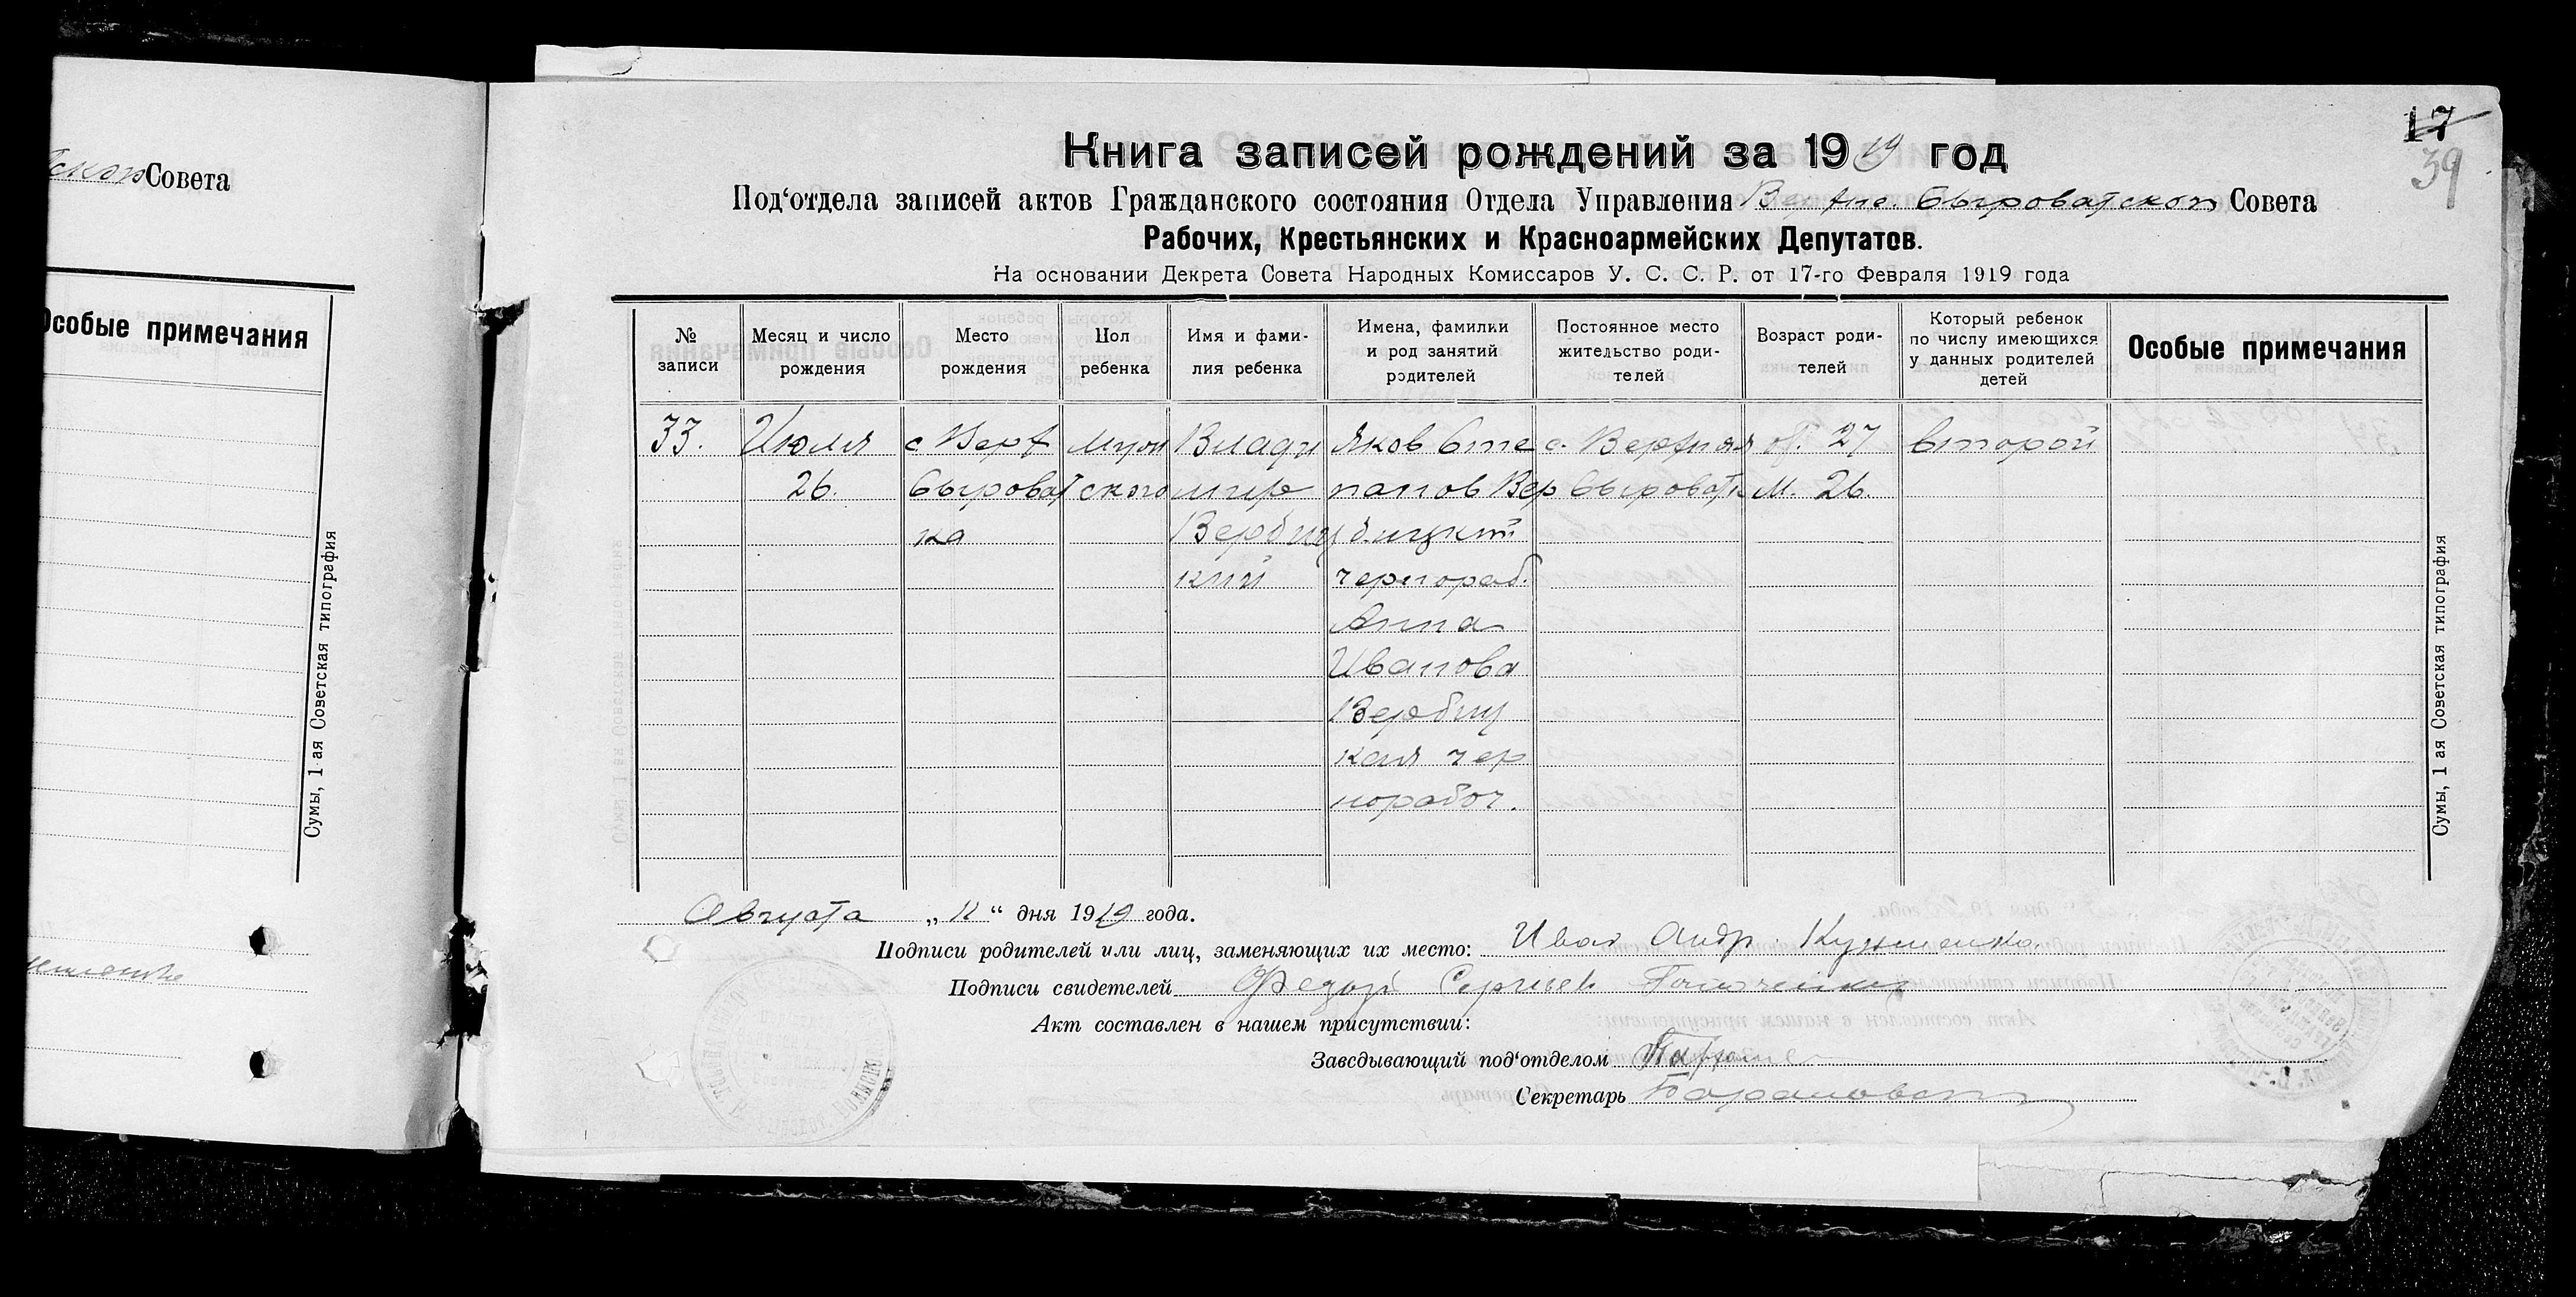 Совета
Особые примечания
Сумы, 1 ая Советская типография
17
39
Книга записей рождений за 1919 год
Под‘отдела записей актов Гражданского состояния Отдела Управления Верхне. Сыроватской Совета
Рабочих, Крестьянских и Красноармейских Депутатов.
На основании Декрета Совета Народных Комиссаров У. С. С. Р. от 17-го Февраля 1919 года
№ записи
Месяц и число рождения
Место рождения
Пол ребенка
Имя и фами-
лия ребенка
Имена, фамилии
и род занятий
родителей
Постоянное место
жительство роди-
телей
Возраст роди-
телей
Который ребенок
по числу имеющихся
у данных родителей
детей
Особые примечания
33.
Июля
26.
с Верх
Сыроват
ка
Муж
ского
Влади
мир
Вербиц
кий
Яков Сте
панов Вер
бицкий
чернораб.
Анна
Иванова
Вербиц
кая чер
норабоч.
с. Верхняя
Сыроватк
от. 27
М. 26.
второй
Августа „ 11 “ дня 1919 года.
Подписи родителей или лиц, заменяющих их место: Иван Андр
Подписи свидетелей Федор Сергеев
Акт составлен в нашем присутствии:
Заведывающий под‘отделом
Секретарь
Сумы, 1 ая Советская типография